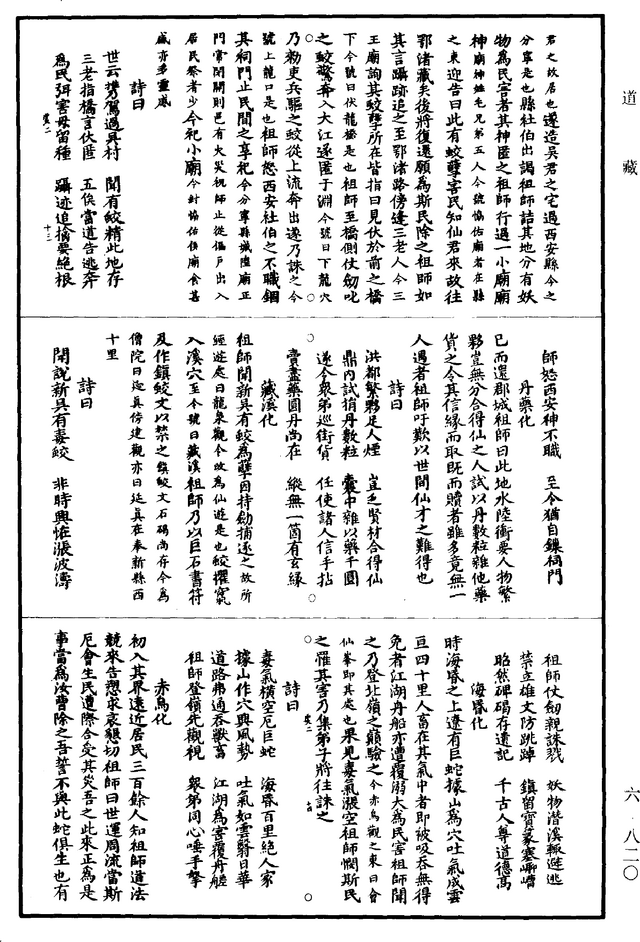 道藏
六·八二〇
君之故居也遂造吳君之宅過西安縣今之
分寧是也縣社伯出謁祖師詰其地分有妖
物為民害者其神匿之祖師行過一小廟廟
神廟神姓毛兄弟五人今號協佑廟者在縣
之東迎告曰此有蛟孽害民知仙君來故往
鄂渚藏矣後將復還願為斯民除之祖師如
其言躡跡追之至鄂渚路傍逢三老人今三
王廟詢其蛟孽所在皆指曰見伏於前之橋
下今號曰伏龍橋是也祖師至橋側仗劒叱
之蛟驚奔入大江遂匿于淵今號曰下龍穴
乃勑吏兵驅之蛟從上流奔出遂乃誅之今
號上龍口是也祖師怒西安社伯之不職錮
其祠門止民間之享祀今分寧縣城隍廟正
門常閉開則邑有火災祝師止從偏戶出入
居民祭者少令祀小廟今封協佑侯廟食甚
盛亦多靈感
詩曰
世云博駕過吳村 聞有蛟精此地存
三老指橋言伏匿 五侯當道告逃奔
為民弭害毋留種 躡迹追擒要絕根
師怒西安神不職 至今猶自鏁祠門
丹藥化
已而還郡城祖師曰此地水陸衝要人物繁
夥豈無分合得仙之人試以丹數粒雜他藥
貨之令其信緣而取既而贖者雖多竟無一
人遇者祖師吁歎以世間仙才之難得也
詩曰
洪都繁夥足人煙 豈乏賢材合得仙
鼎內試捎丹數粒 囊中雜以藥千圓
遂令衆弟巡街貨 任使諸人信手拈
賣盡藥圓丹尚在 縱無一箇有玄緣
藏溪化
祖師聞新吳有蛟為孽因持劒捕逐之故所
經遊處曰龍泉觀今改為仙遊是也蛟懼竄
入溪穴至今號曰藏溪祖師乃以巨石書符
及作鎮蛟文以禁之鎮蛟文石碣尚存今為
僧院曰延真傍建觀亦曰延真在奉新縣西
十里
詩曰
聞說新吳有毒蛟 非時興恠漲波濤
祖師仗劒親誅戮 妖物潛溪輒遯逃
禁立雄文防跳踔 鎮留寶篆塞嶙嶒
昭然碑碣存遺記 千古人尊道德高
海昏化
時海昏之上遼有巨蛇據山為穴吐氣成雲
亘四十里人畜在其氣中者即被吸吞無得
免者江湖丹船亦遭覆溺大為民害祖師聞
之乃登北嶺之巔驗之今赤烏觀之東曰會
仙峯即其處也果見毒氣漲空祖師憫斯民
之罹其害乃集弟子將往誅之
詩曰
毒氣橫空厄巨蛇 海昏百里絕人家
據山作穴興風勢 吐氣如雲翳日華
道路弗通吞獸畜 江湖為害覆丹艖
祖師登嶺先觀視 衆弟同心唾手拏
赤烏化
初入其界遠近居民三百餘人知祖師道法
競來告愬求哀懇切祖師曰世運周流當斯
厄會生民遭際合受其災吾之此來正為是
事當為汝曹除之吾誓不與此蛇俱生也有